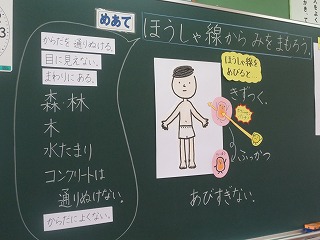 めあて
ほうしゃ線から みをまもろう。
からだを 通りぬける。
目に見えない。
まわりにある。
森・林
木
水たまり
コンクリートは
通りぬけない。
からだによくない。
ほうしゃ線を
あびると
きずつく。
ふっかつ
あびすぎない。